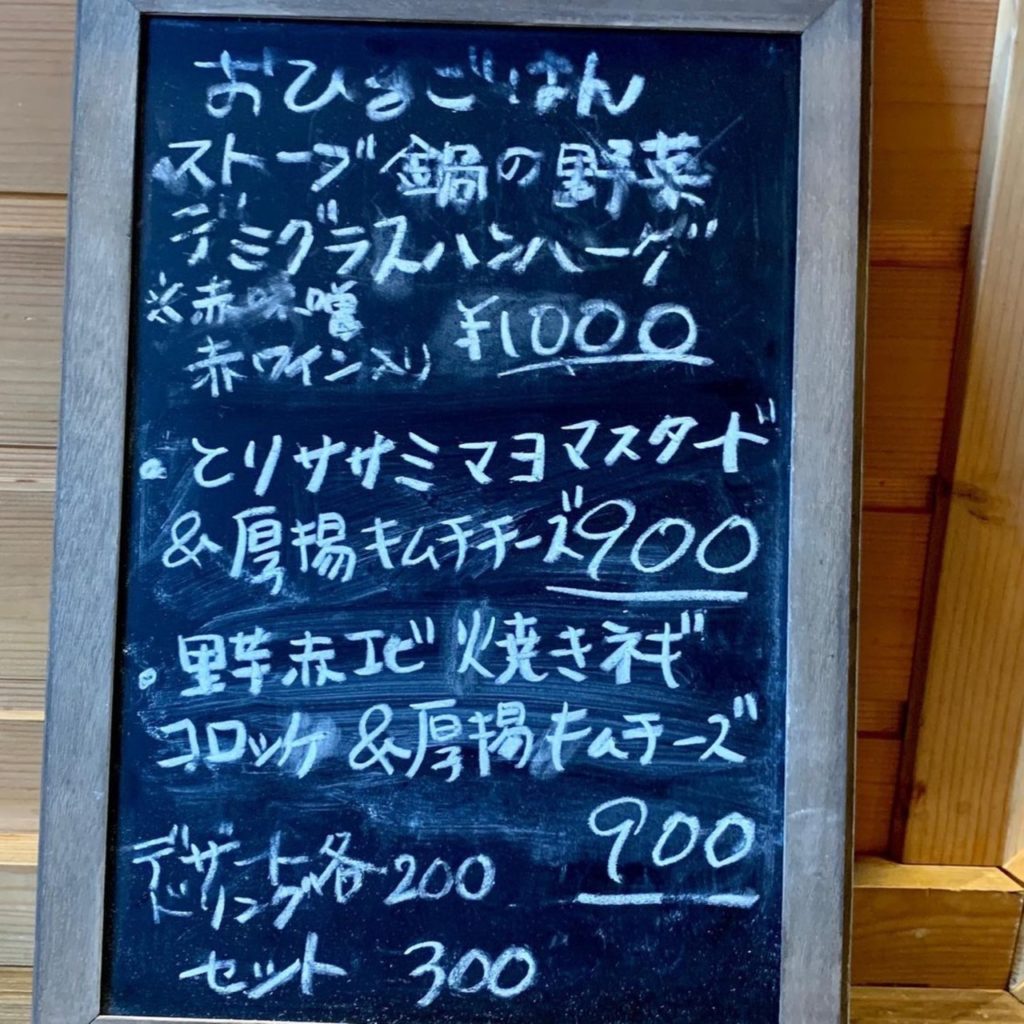 おひるごはん
ストーブ鍋の野菜
デミグラスハンバーグ
※赤味噌
赤ワイン入り ¥1000
・とりササミマヨマスタード
&厚揚キムチチーズ 900
・里芋赤エビ焼きネギ
コロッケ &厚揚キムチーズ
900
デザート 各 200
ドリンク
セット 300